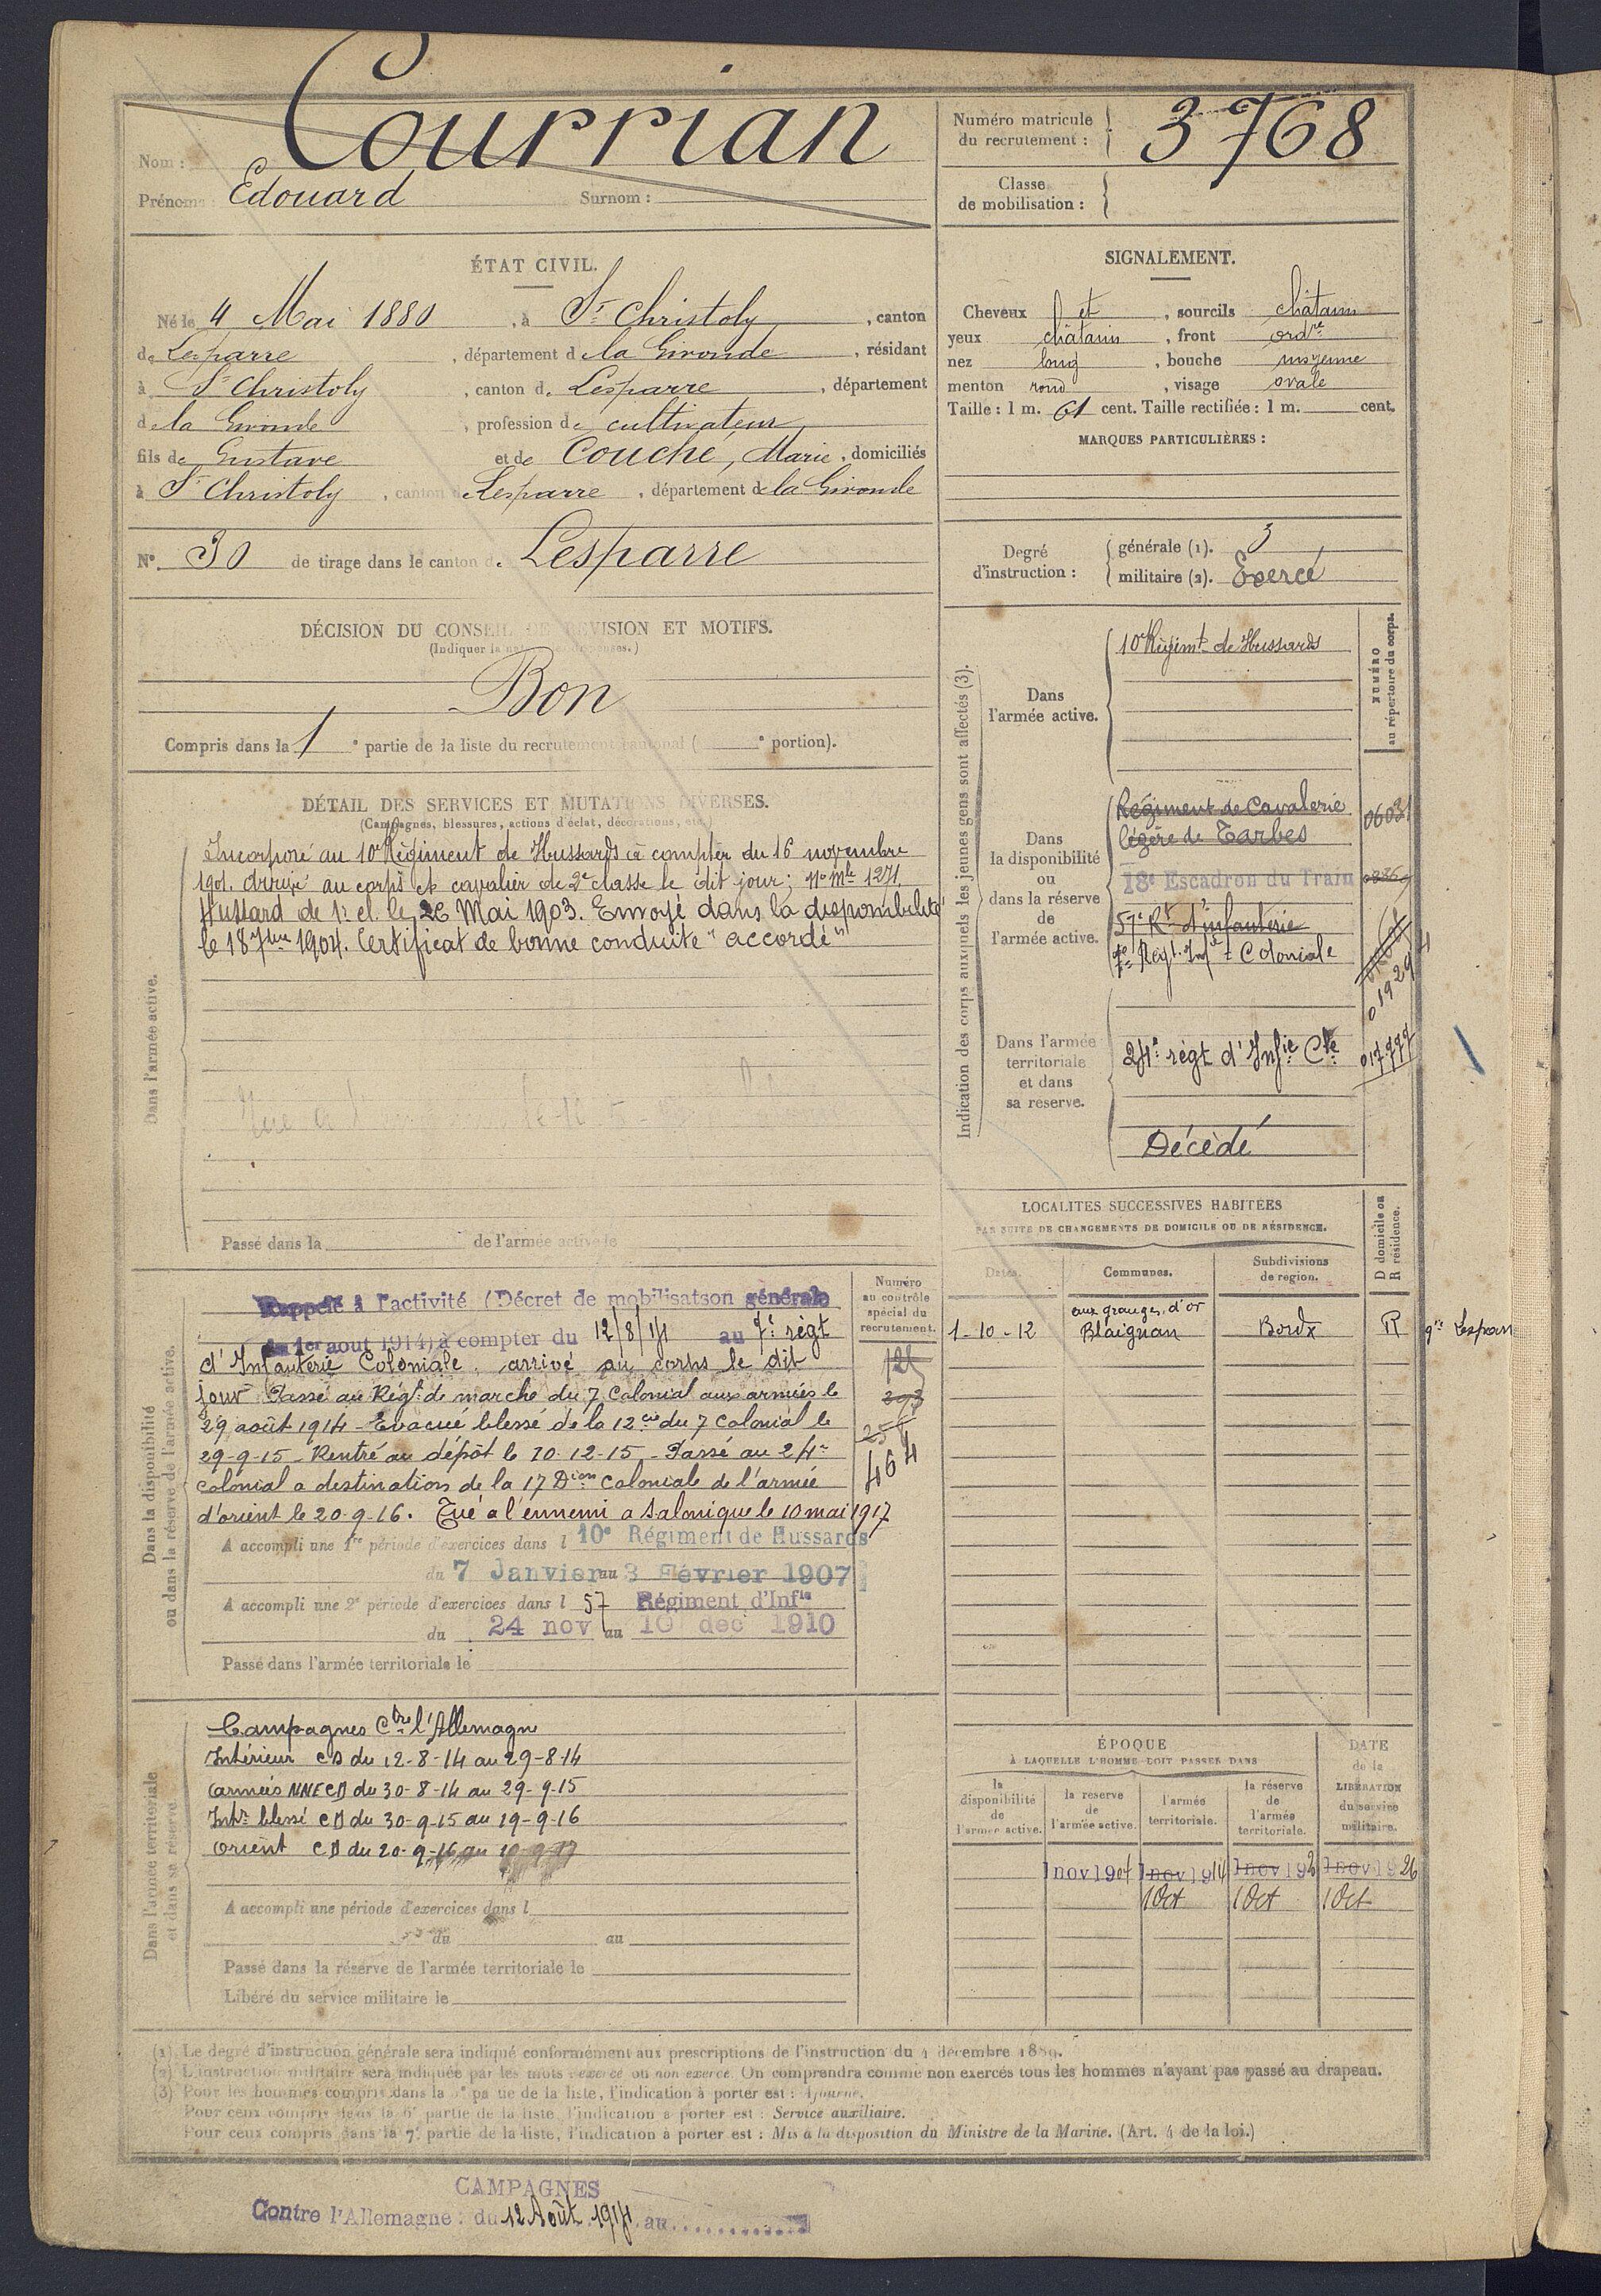 Nom : Courrian
Prénoms : Edouard Surnom :
Numéro matricule du recrutement : 3768
Classe de mobilisation :
ÉTAT CIVIL.
Né le 4 Mai 1880, à St Christoly, canton
de Lesparre, département de la Gironde, résidant
à St Christoly, canton de Lesparre, département
de la Gironde, profession de cultivateur
fils de Gustave et de Couché, Marie, domiciliés
à St Christoly, canton de Lesparre, département de la Gironde
N° 30 de tirage dans le canton de Lesparre
SIGNALEMENT.
Cheveux et, sourcils châtains
yeux châtains, front ordre
nez long, bouche moyenne
menton rond, visage ovale
Taille : 1 m. 61 cent. Taille rectifiée : 1 m. cent.
MARQUES PARTICULIÈRES :
Degré d'instruction :
générale (1). 3
militaire (2). Exercé
DÉCISION DU CONSEIL DE RÉVISION ET MOTIFS.
Bon
Compris dans la 1e partie de la liste du recrutement cantonal ( e portion).
DÉTAIL DES SERVICES ET MUTATIONS DIVERSES.
(Campagnes, blessures, actions d'éclat, décorations, etc.)
Dans l'armée active.
Incorporé au 10e Régiment de Hussards à compter du 16 novembre
1901. Arrivé au corps et cavalier de 2e classe le dit jour ; No Mle 1271.
Hussard de 1e cl. le 26 Mai 1903. Envoyé dans la disponibilité
le 18 7bre 1904. Certificat de bonne conduite "accordé"
Passé dans la de l'armée active le
Indication des corps auxquels les jeunes gens sont affectés (3).
NUMÉRO au répertoire du corps.
Dans l'armée active.
10e Régimt de Hussards
Dans la disponibilité ou dans la réserve de l'armée active.
Régiment de Cavalerie
légère de Tarbes
18e Escadron du Train
57e Rt d'infanterie
7e Régt. Infie Coloniale
Dans l'armée territoriale et dans sa réserve.
24e régt d'Infie Cle
Décédé
LOCALITÉS SUCCESSIVES HABITÉES
PAR SUITE DE CHANGEMENTS DE DOMICILE OU DE RÉSIDENCE.
Dates. Communes. Subdivisions de région. D domicile ou R résidence.
1-10-12 aux granges, d'or Blaignan Bordx R
Dans la disponibilité ou dans la réserve de l'armée active.
Numéro au contrôle spécial du recrutement.
Rappelé à l'activité (Décret de mobilisatson générale
du 1er aout 1914) à compter du 12/8/14 au 7e régt
d'Infanterie Coloniale, arrivé au corps le dit
jour. Passé au Régt de marche du 7 Colonial aux armées le
29 août 1914 - Evacué blessé de la 12 cie du 7 Colonial le
29-9-15 - Rentré au dépôt le 10-12-15 - Passé au 24e
colonial a destination de la 17 Dion Coloniale de l'armée
d'orient le 20-9-16. Tué a l'ennemi a Salonique le 10 mai 1917
464
A accompli une 1re période d'exercices dans l 10e Régiment de Hussards
du 7 Janvier au 3 Février 1907
A accompli une 2e période d'exercices dans l 57 Régiment d'Infie
du 24 nov au 10 déc 1910
Passé dans l'armée territoriale le
Dans l'armée territoriale et dans sa réserve.
Campagnes Ctre l'Allemagne
Intérieur CD du 12-8-14 au 29-8-14
armées NNECD du 30-8-14 au 29-9-15
Intr blessé CD du 30-9-15 au 19-9-16
Orient CD du 20-9-16 au
A accompli une période d'exercices dans l
du au
Passé dans la réserve de l'armée territoriale le
Libéré du service militaire le
ÉPOQUE
À LAQUELLE L'HOMME DOIT PASSER DANS
la disponibilité de l'armée active.
la réserve de l'armée active.
l'armée territoriale.
la réserve de l'armée territoriale.
DATE de la LIBÉRATION du service militaire.
1 nov 1904 1 nov 1914 1 nov 192 1 nov 1926
1 Oct 1 Oct 1 Oct
(1) Le degré d'instruction générale sera indiqué conformément aux prescriptions de l'instruction du 4 décembre 1889.
(2) L'instruction militaire sera indiquée par les mots : exercé ou non exercé. On comprendra comme non exercés tous les hommes n'ayant pas passé au drapeau.
(3) Pour les hommes compris dans la 5e partie de la liste, l'indication à porter est : Ajourné.
Pour ceux compris dans la 6e partie de la liste, l'indication à porter est : Service auxiliaire.
Pour ceux compris dans la 7e partie de la liste, l'indication à porter est : Mis à la disposition du Ministre de la Marine. (Art. 4 de la loi.)
CAMPAGNES
Contre l'Allemagne : du 12 Août 1914 au